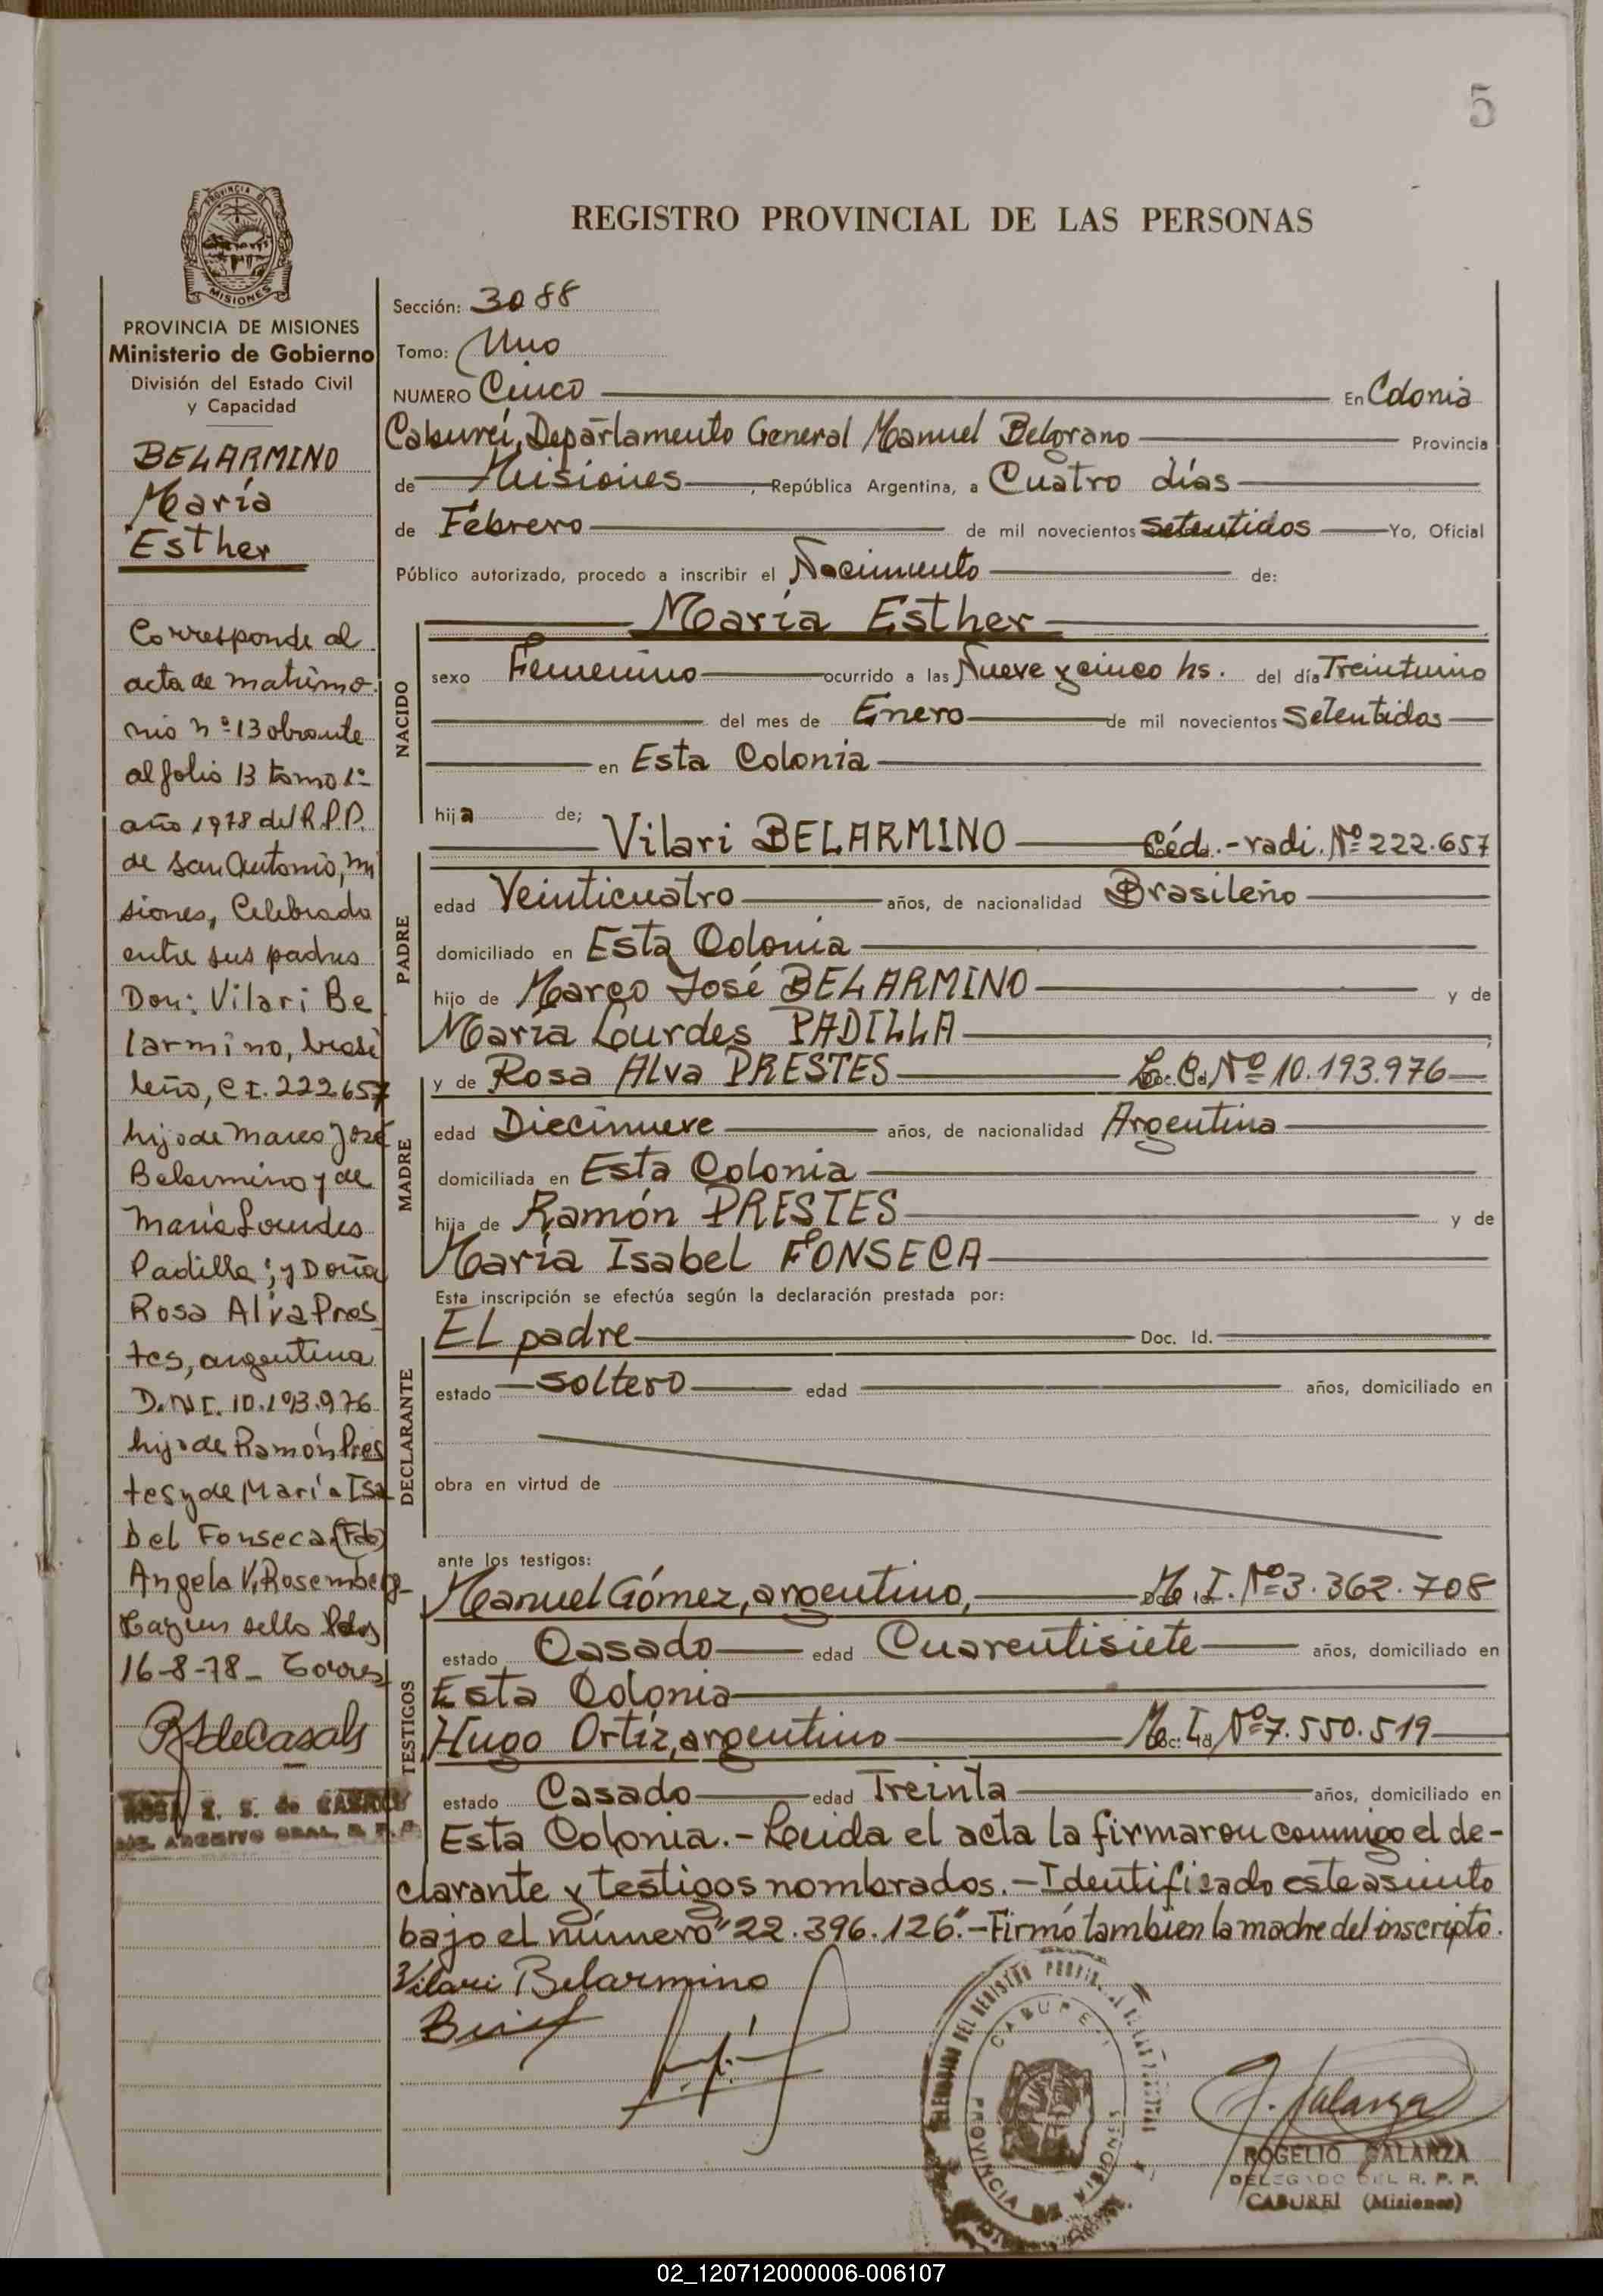 5
REGISTRO PROVINCIAL DE LAS PERSONAS
PROVINCIA DE
MISIONES
PROVINCIA DE MISIONES
Ministerio de Gobierno
División del Estado Civil
y Capacidad
BELARMINO
María
Esther
Corresponde al
acta de matrimo
nio nº 13 obrante
al folio 13 tomo 1º
año 1978 del R.P.P.
de San Antonio, Mi
siones, Celebrado
entre sus padres
Don: Vilari Be
larmino, brasi
leño, C.I. 222.657
hijo de Marco José
Belarmino y de
María Lourdes
Padilla; y Doña
Rosa Alva Pres
tes, argentina
D.N.I. 10.193.976
hijo de Ramón Pres
tes y de María Isa
bel Fonseca (Fdo)
Angela V. Rosemberg
sello Pdas
16-8-78 - Torres
RSdeCasals
ROSA E. S. de CASALS
ARCHIVO GRAL. R. P. P.
Sección: 3088
Tomo: Uno
NUMERO Cinco En Colonia
Caburei, Departamento General Manuel Belgrano Provincia
de Misiones, República Argentina, a Cuatro días
de Febrero de mil novecientos setentidos Yo, Oficial
Público autorizado, procedo a inscribir el Nacimiento de:
NACIDO
María Esther
sexo Femenino ocurrido a las Nueve y cinco hs. del día Treintuino
del mes de Enero de mil novecientos Setentidos
en Esta Colonia
hija de;
PADRE
Vilari BELARMINO Céd.-radi. Nº 222.657
edad Veinticuatro años, de nacionalidad Brasileño
domiciliado en Esta Colonia
hijo de Marco José BELARMINO y de
María Lourdes PADILLA
MADRE
y de Rosa Alva PRESTES L.C. Nº 10.193.976
edad Diecinueve años, de nacionalidad Argentina
domiciliada en Esta Colonia
hija de Ramón PRESTES y de
María Isabel FONSECA
Esta inscripción se efectúa según la declaración prestada por:
DECLARANTE
El padre Doc. Id.
estado soltero edad años, domiciliado en
obra en virtud de
ante los testigos:
TESTIGOS
Manuel Gómez, argentino, M.I. Nº 3.362.708
estado Casado edad Cuarentisiete años, domiciliado en
Esta Colonia
Hugo Ortíz, argentino M.I. Nº 7.550.519
estado Casado edad Treinta años, domiciliado en
Esta Colonia.- Leida el acta la firmarou conmigo el de-
clarante y testigos nombrados.- Identificado este asiento
bajo el número "22.396.126".- Firmó tambien la madre del inscripto.
Vilari Belarmino
DEL REGISTRO PROVINCIAL DE LAS PERSONAS
CABUREI
PROVINCIA DE MISIONES
R. Galarza
ROGELIO GALARZA
DELEGADO DEL R. P. P.
CABUREI (Misiones)
02_120712000006-006107